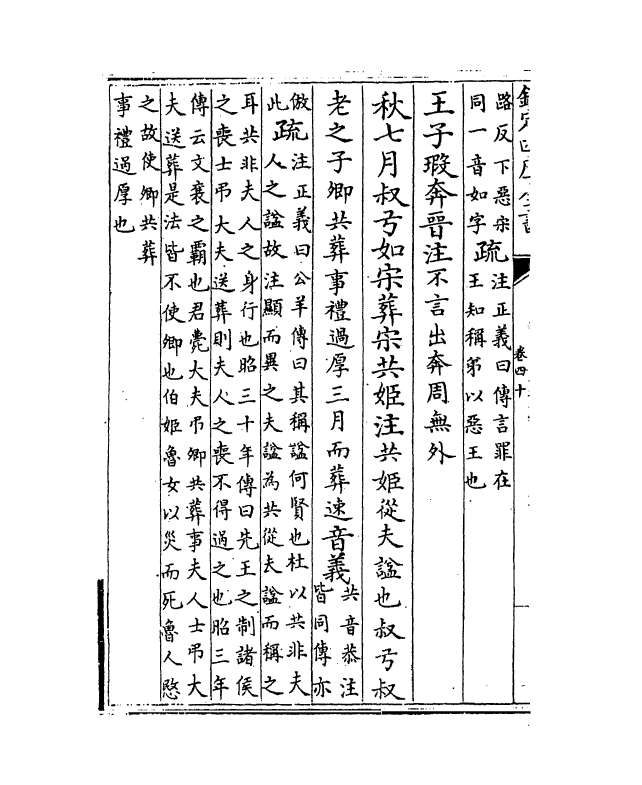 欽定四庫全書
卷四十
路反下惡宋
同一音如字
疏
注正義曰傳言罪在
王知稱弟以惡王也
王子瑕奔晉注不言出奔周無外
秋七月叔弓如宋葬宋共姬注共姬從夫諡也叔弓叔
老之子卿共葬事禮過厚三月而葬速音義
共音恭注
皆同傳亦
倣
此
疏
注正義曰公羊傳曰其稱諡何賢也杜以共非夫
人之諡故注顯而異之夫諡為共從夫諡而稱之
耳共非夫人之身行也昭三十年傳曰先王之制諸侯
之喪士吊大夫送葬則夫人之喪不得過之也昭三年
傳云文襄之霸也君薨大夫吊卿共葬事夫人士吊大
夫送葬是法皆不使卿也伯姬魯女以災而死魯人愍
之故使卿共葬
事禮過厚也